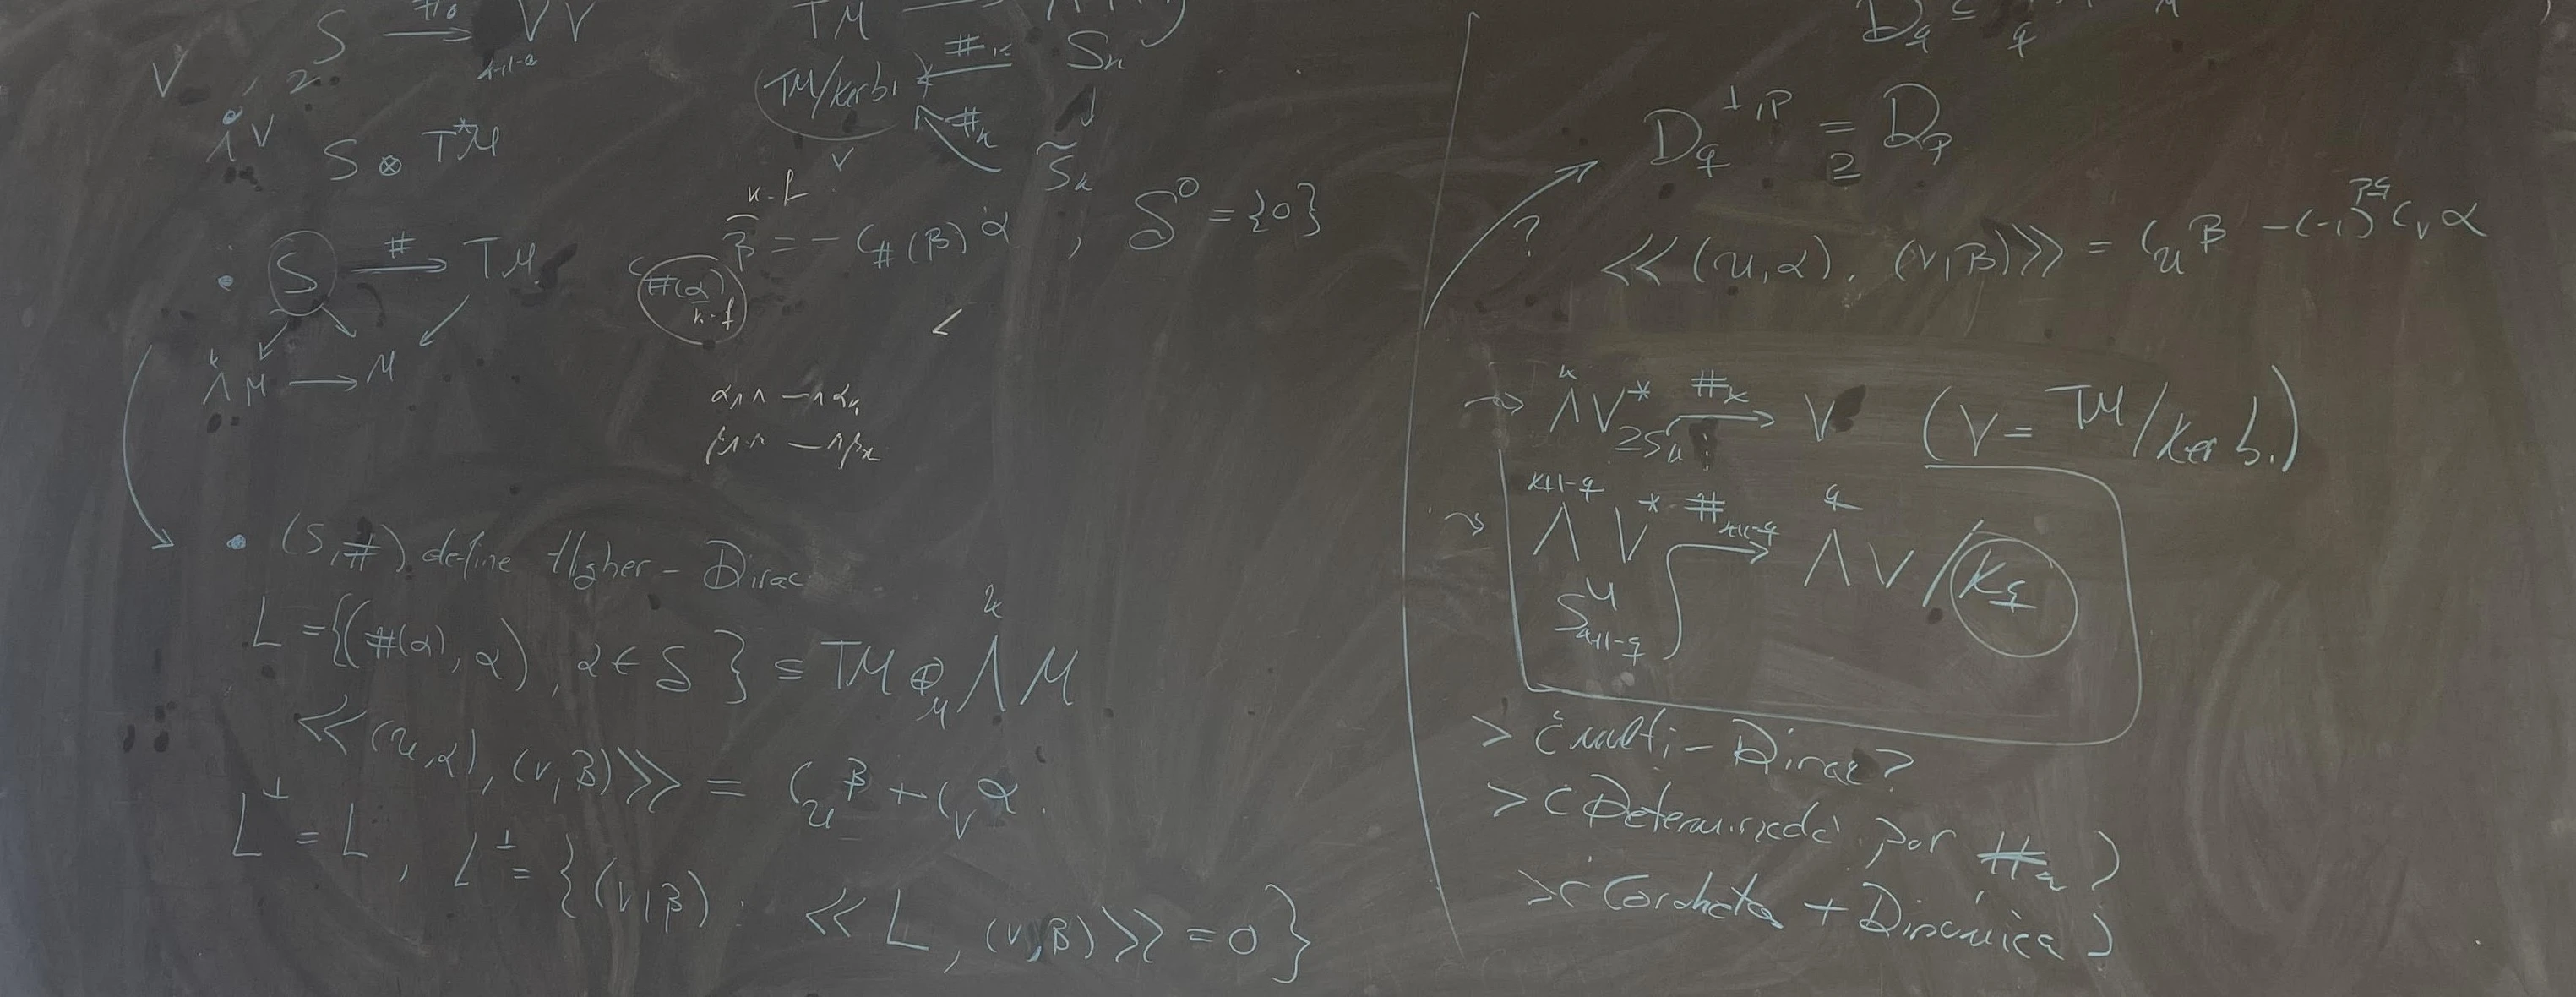 S → V V
V , 2
Λ V S ⊗ T*M
• S —#→ TM
Λᵏ M → M
TM →
(TM/ker b₁) ←#ₖ Sₖ
#ₖ S̃ₖ
V
ι_#(α) β = - ι_#(β) α , S⁰ = {0}
α₁ ∧ — ∧ αₖ
β₁ ∧ — ∧ βₖ
• (S, #) define Higher - Dirac
L = {(#(α), α), α ∈ S} ⊆ TM ⊕_M Λᵏ M
≪(u,α), (v,β)≫ = ι_u β + ι_v α.
L^⊥ = L , L^⊥ = {(v,β) : ≪L, (v,β)≫ = 0}
D_q =
? D_q^{⊥,p} = D_p
≪(u,α), (v,β)≫ = ι_u β - (-1)^{pq} ι_v α
→ Λᵏ V* ⊇ Sₖ —#ₖ→ V (V = TM/ker b₁)
→ Λ^{k+1-q} V* —#_{k+1-q}→ Λ^q V / K_q
S_{k+1-q}
> ¿multi-Dirac?
> ¿Determinada por #ₖ?
> ¿Corchetes + Dinámica?